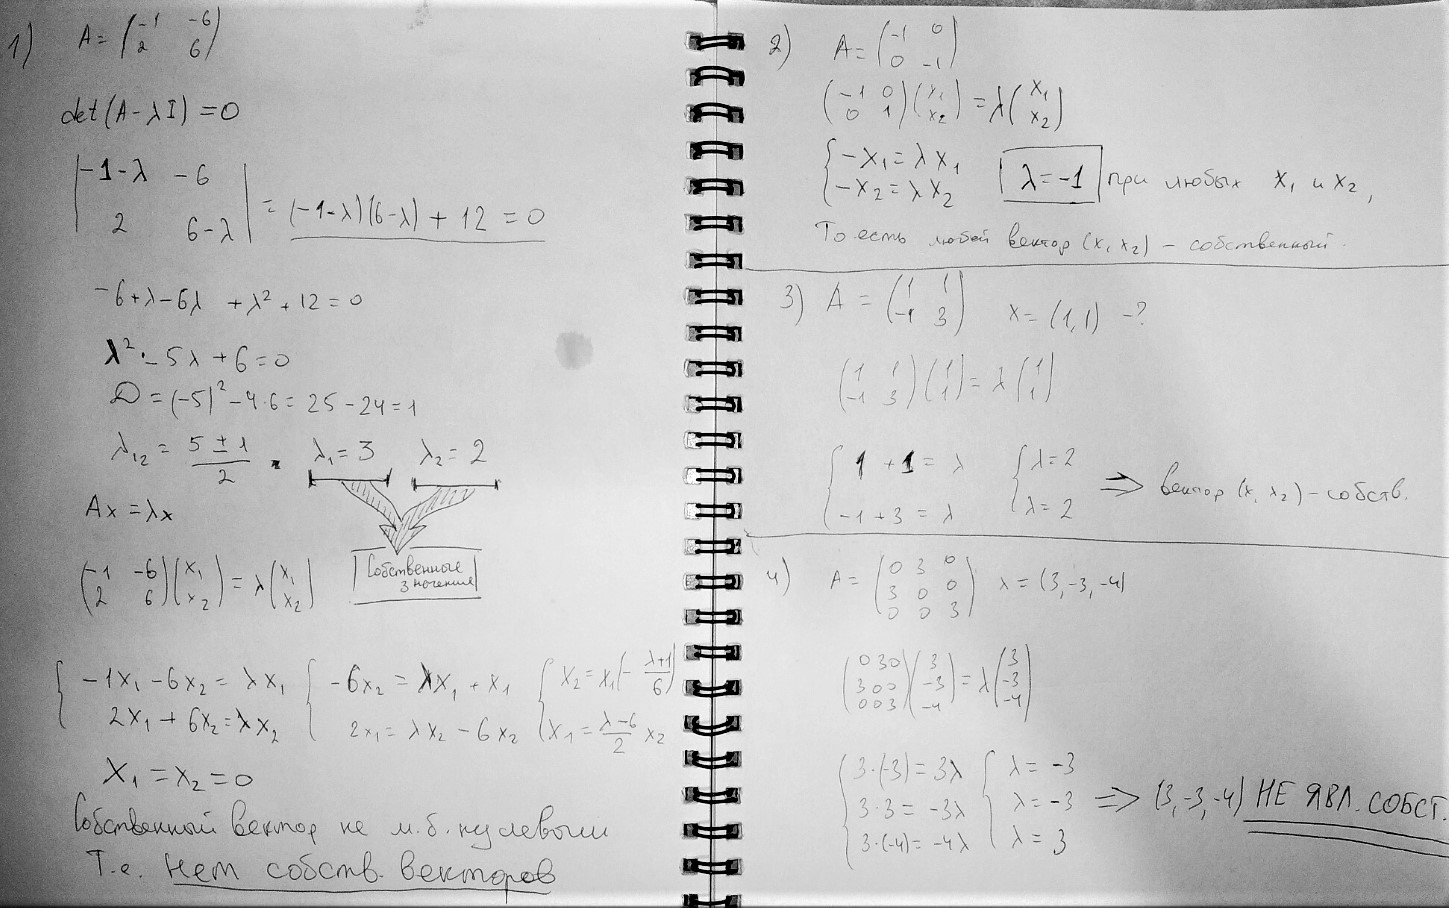 1) A = (-1 -6
2 6)
det(A - λI) = 0
|-1-λ -6
2 6-λ| = (-1-λ)(6-λ) + 12 = 0
-6+λ-6λ +λ²+12=0
λ² - 5λ + 6 = 0
D = (-5)² - 4·6 = 25 - 24 = 1
λ₁₂ = (5 ± 1)/2 . λ₁ = 3 λ₂ = 2
Ax = λx
Собственные
значения
(-1 -6
2 6)(x₁
x₂) = λ(x₁
x₂)
{ -1x₁ - 6x₂ = λx₁ { -6x₂ = λx₁ + x₁ { x₂ = x₁(-(λ+1)/6)
2x₁ + 6x₂ = λx₂ 2x₁ = λx₂ - 6x₂ x₁ = (λ-6)/2 x₂
x₁ = x₂ = 0
Собственный вектор не м.б. нулевым
Т.е. нет собств. векторов
2) A = (-1 0
0 -1)
(-1 0
0 1)(x₁
x₂) = λ(x₁
x₂)
{ -x₁ = λx₁
-x₂ = λx₂ λ = -1 при любых x₁ и x₂,
То есть любой вектор (x, x₂) - собственный.
3) A = (1 1
-1 3) x = (1,1) -?
(1 1
-1 3)(1
1) = λ(1
1)
{ 1 + 1 = λ { λ = 2
-1 + 3 = λ λ = 2 ⇒ вектор (x, x₂) - собств.
4) A = (0 3 0
3 0 0
0 0 3) λ = (3, -3, -4)
(0 3 0
3 0 0
0 0 3)(3
-3
-4) = λ(3
-3
-4)
{ 3·(-3) = 3λ { λ = -3
3·3 = -3λ λ = -3 ⇒ (3, -3, -4) НЕ ЯВЛ. СОБСТ.
3·(-4) = -4λ λ = 3